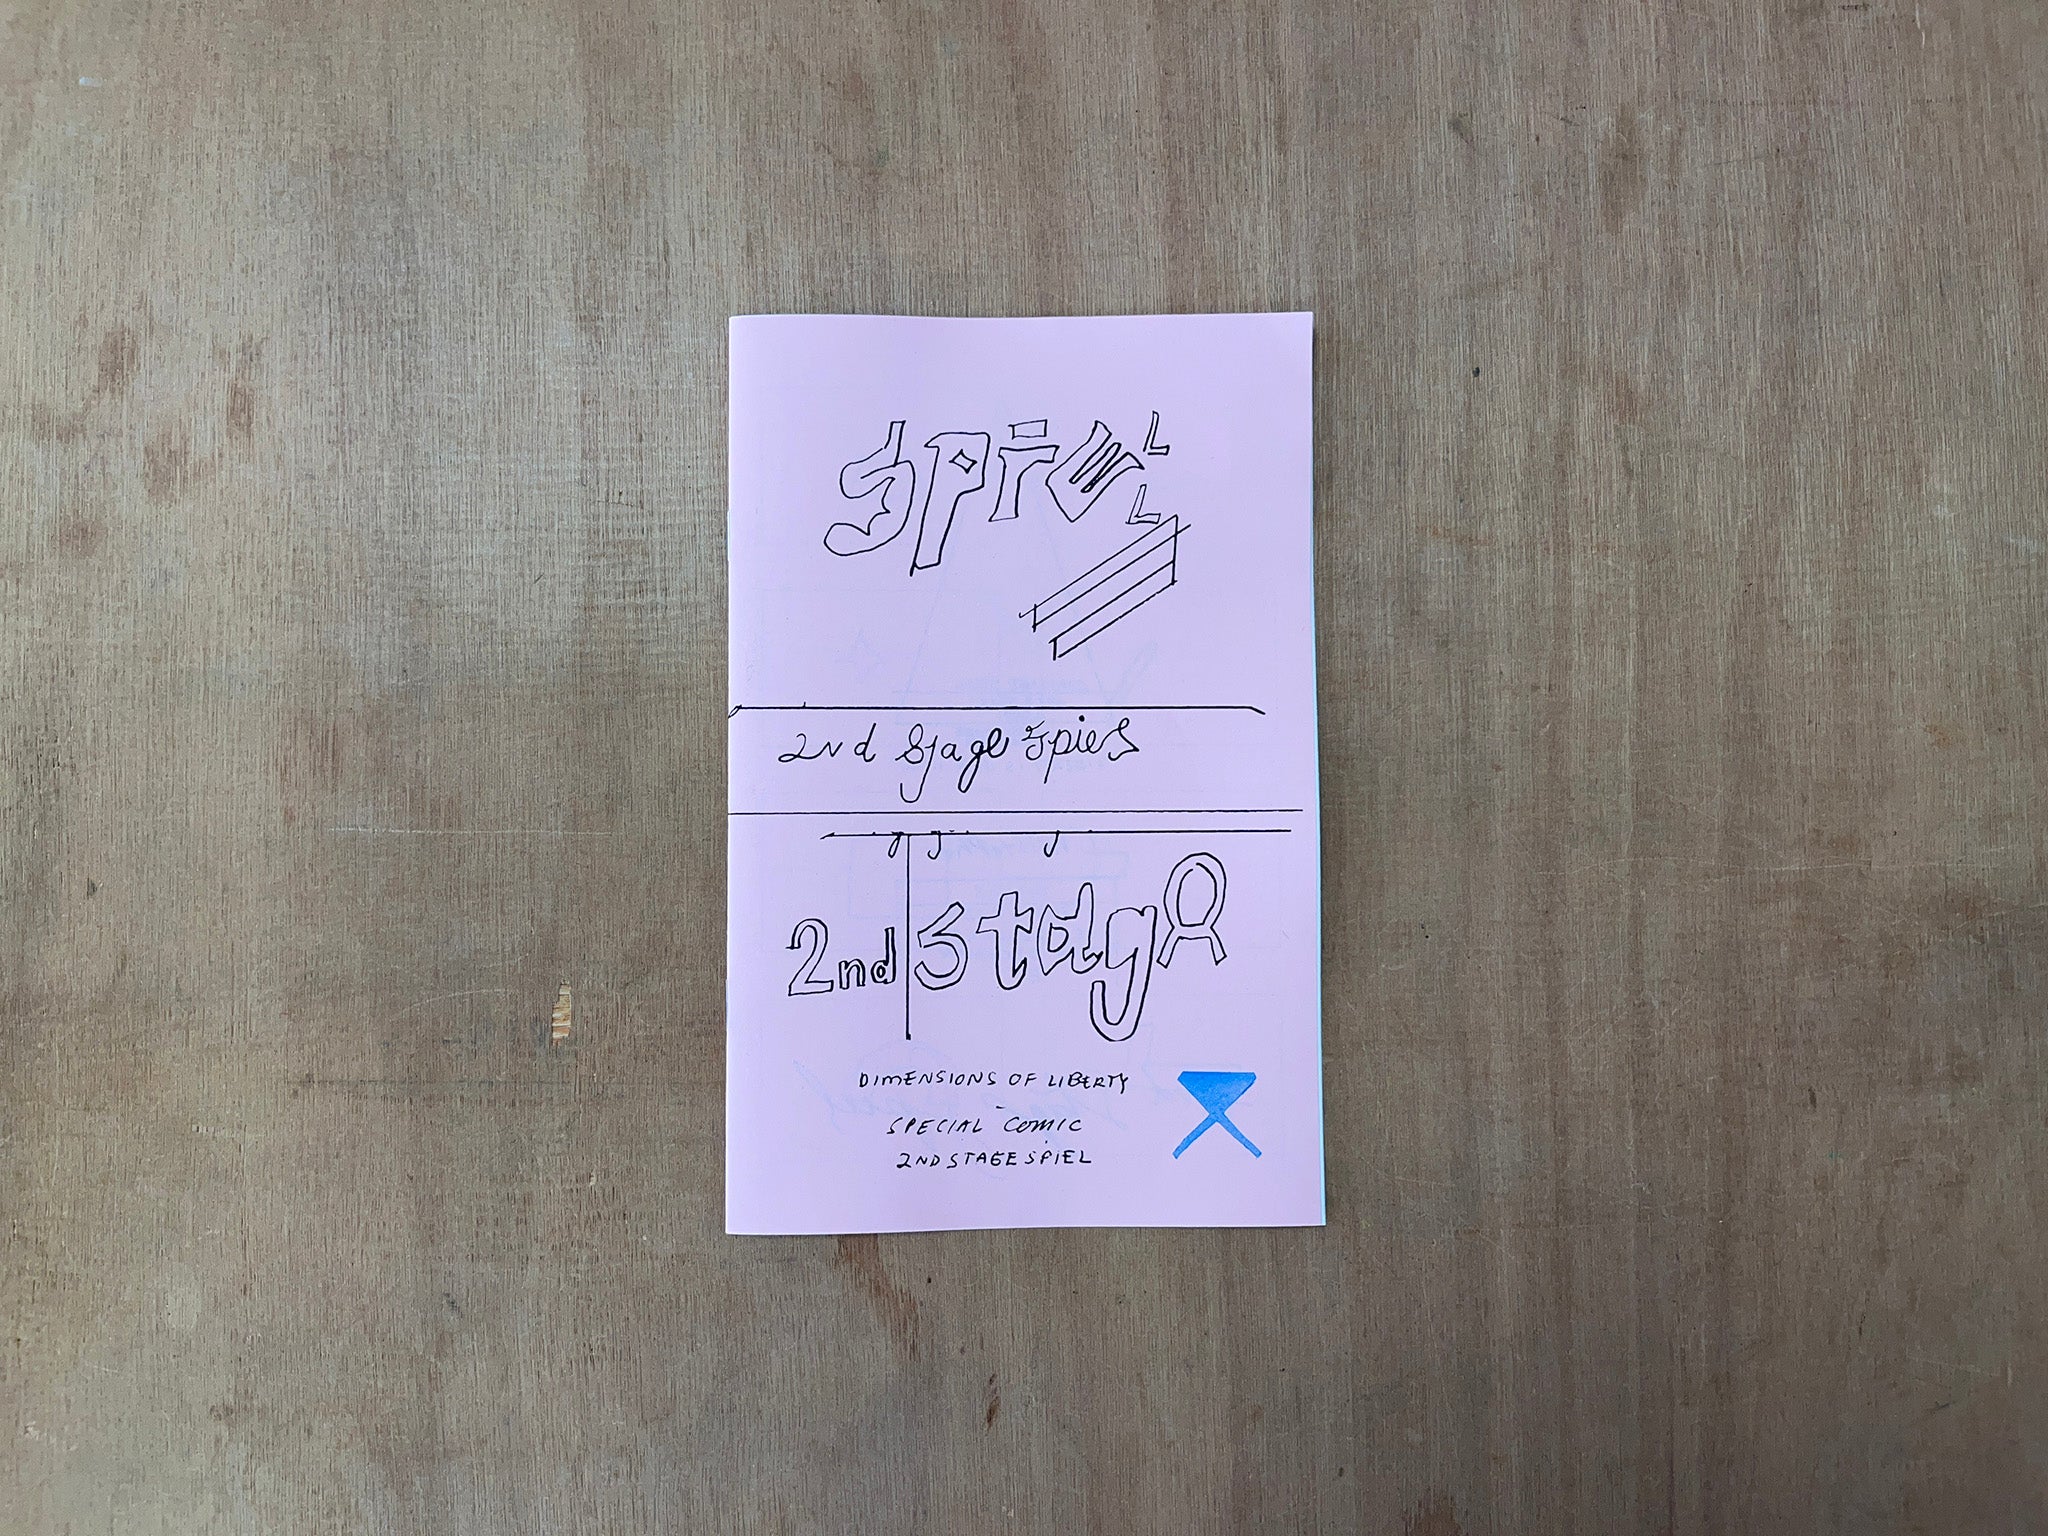 SPIEL
L
2nd Stage Spiel
2nd Stage
DIMENSIONS OF LIBERTY
-
SPECIAL COMIC
2ND STAGE SPIEL